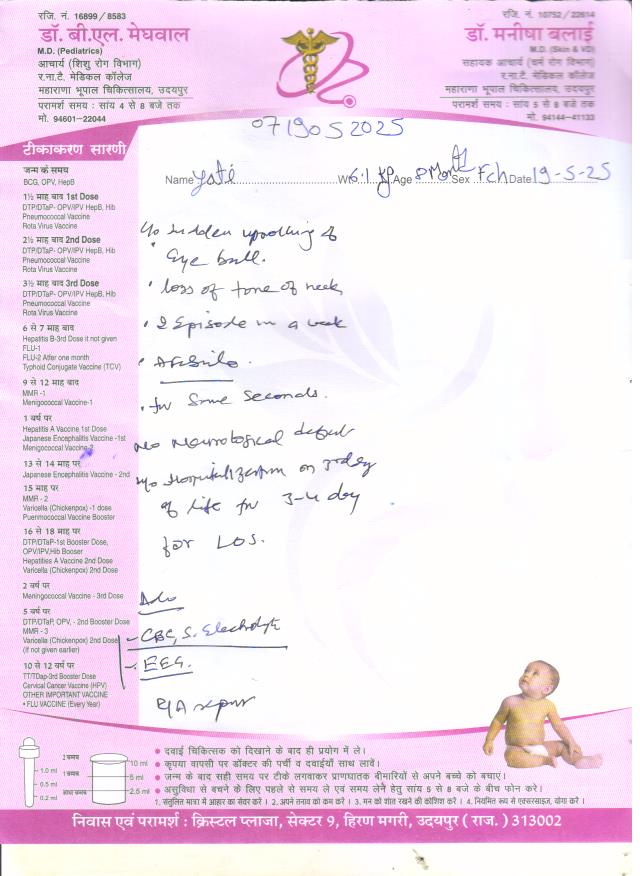 रजि. नं. 16899 / 8583
डॉ. बी.एल. मेघवाल
M.D. (Pediatrics)
आचार्य (शिशु रोग विभाग)
र.ना.टै. मेडिकल कॉलेज
महाराणा भूपाल चिकित्सालय, उदयपुर
परामर्श समय : सांय 4 से 8 बजे तक
मो. 94601-22044
रजि. नं. 10752 / 22614
डॉ. मनीषा बलाई
M.D. (Skin & VD)
सहायक आचार्य (चर्म रोग विभाग)
र.ना.टै. मेडिकल कॉलेज
महाराणा भूपाल चिकित्सालय, उदयपुर
परामर्श समय : सांय 5 से 8 बजे तक
मो. 94144-41133
0719052025
Name Yati Wt. 6.1 kg Age 8 Month Sex Fch Date 19-5-25
टीकाकरण सारणी
जन्म के समय
BCG, OPV, HepB
1½ माह बाद 1st Dose
DTP/DTaP- OPV/IPV HepB, Hib
Pneumococcal Vaccine
Rota Virus Vaccine
2½ माह बाद 2nd Dose
DTP/DTaP- OPV/IPV HepB, Hib
Pneumococcal Vaccine
Rota Virus Vaccine
3½ माह बाद 3rd Dose
DTP/DTaP- OPV/IPV HepB, Hib
Pneumococcal Vaccine
Rota Virus Vaccine
6 से 7 माह बाद
Hepatitis B-3rd Dose it not given
FLU-1
FLU-2 Atfer one month
Typhoid Conjugate Vaccine (TCV)
9 से 12 माह बाद
MMR -1
Menigococcal Vaccine-1
1 वर्ष पर
Hepatitis A Vaccine 1st Dose
Japanese Encephalitis Vaccine -1st
Menigococcal Vaccine-2
13 से 14 माह पर
Japanese Encephalitis Vaccine - 2nd
15 माह पर
MMR - 2
Varicella (Chickenpox) -1 dose
Puenmococcal Vaccine Booster
16 से 18 माह पर
DTP/DTaP-1st Booster Dose,
OPV/IPV,Hib Booser
Hepatities A Vaccine 2nd Dose
Varicella (Chickenpox) 2nd Dose
2 वर्ष पर
Meningococcal Vaccine - 3rd Dose
5 वर्ष पर
DTP/DTaP, OPV, - 2nd Booster Dose
MMR - 3
Varicella (Chickenpox) 2nd Dose
(if not given earlier)
10 से 12 वर्ष पर
TT/TDap-3rd Booster Dose
Cervical Cancer Vaccine (HPV)
OTHER IMPORTANT VACCINE
• FLU VACCINE (Every Year)
uprolling of
Eye ball.
• loss of tone of neck
• 2 Episode in a week
• Afebrile.
• for some seconds.
No neurological deficit
H/o Hospitalization on 3rd day
of life for 3-4 day
for LOS.
Adv
- CBC, S. Electrolyte
- EEG.
2 चम्मच
1 चम्मच
आधा चम्मच
1.0 ml
0.5 ml
0.2 ml
10 ml
5 ml
2.5 ml
• दवाई चिकित्सक को दिखाने के बाद ही प्रयोग में ले।
• कृपया वापसी पर डॉक्टर की पर्ची व दवाईयाँ साथ लावें।
• जन्म के बाद सही समय पर टीके लगवाकर प्राणघातक बीमारियों से अपने बच्चे को बचाएं।
• असुविधा से बचने के लिए पहले से समय ले एवं समय लेने हेतु सांय 5 से 8 बजे के बीच फोन करे।
1. संतुलित मात्रा में आहार का सेवर करें । 2. अपने तनाव को कम करें । 3. मन को शांत रखने की कोशिश करें । 4. नियमित रूप से एक्सरसाइज, योगा करें ।
निवास एवं परामर्श : क्रिस्टल प्लाजा, सेक्टर 9, हिरण मगरी, उदयपुर ( राज. ) 313002